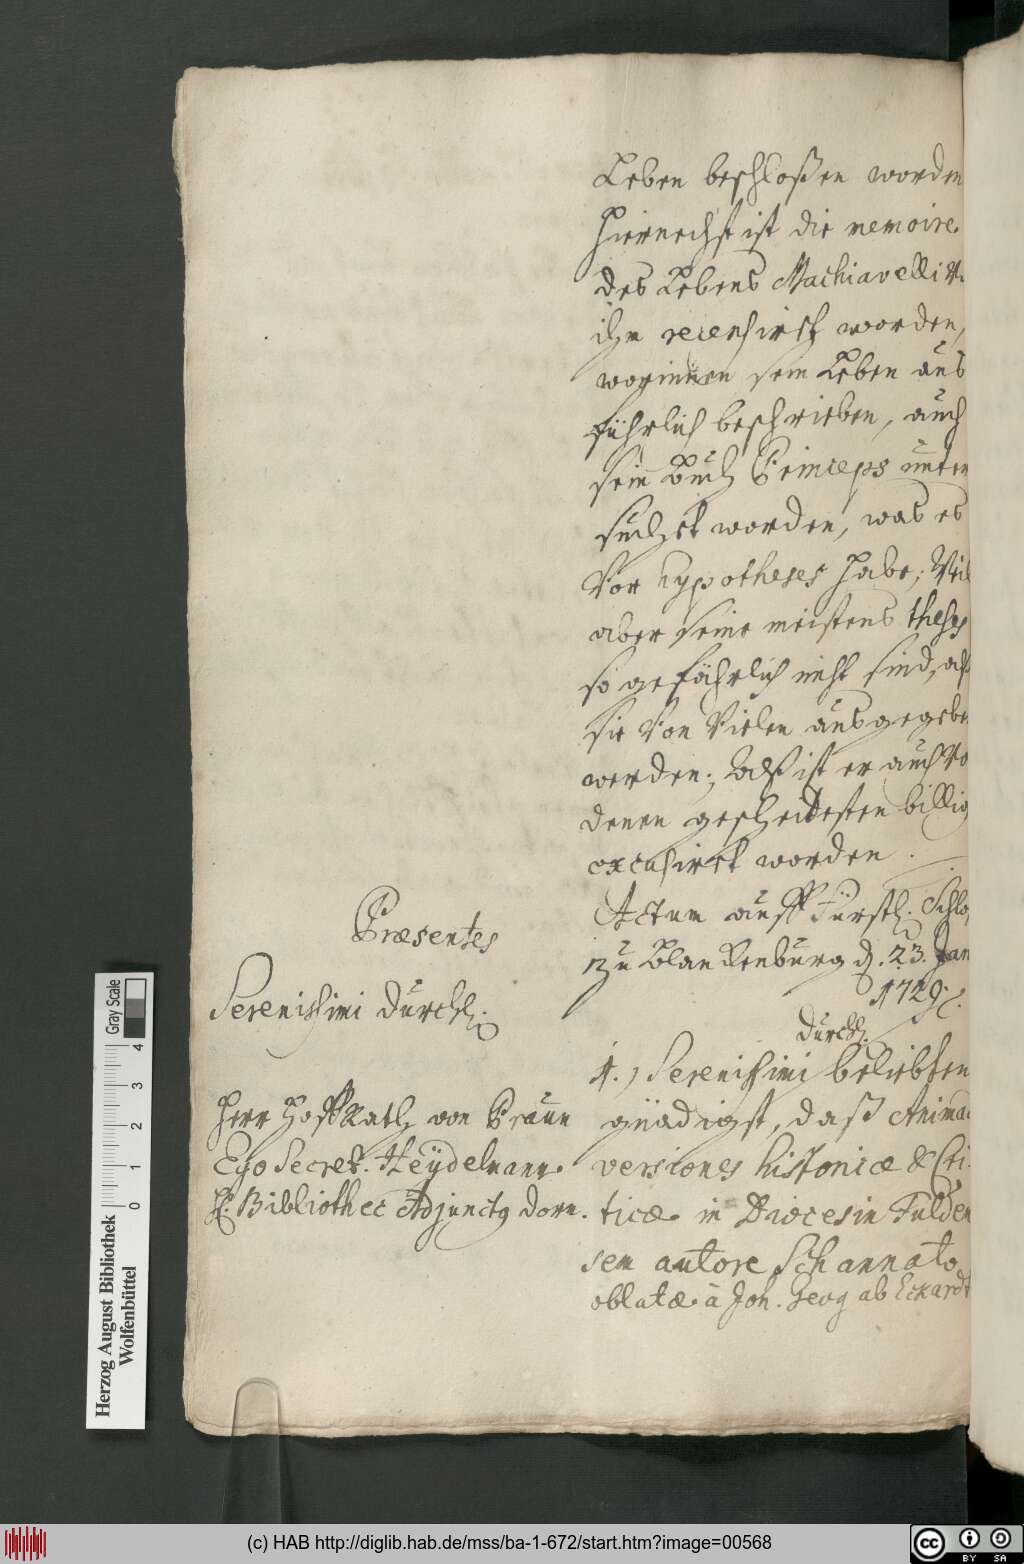 Leben beschloßen worden
Hiernechst ist die memoire
des Lebens Machiavelli
ihm recensiret worden,
worinnen sein Leben aus
führlich beschrieben, auch
sein Buch Princeps unter
suchet worden, was es
Vor hypotheses habe; Weil
aber seine meistens theses
so gefährlich nicht sind, alß
sie Von Vielen ausgegebe
werden; Alß ist er auch Vo
denen gescheidesten billig
excusiret worden.
Actum auff Fürstl. Schlo
zu Blankenburg d. 23. Jan
1729.
Præsentes
Serenissimi Durchl.
Herr HoffRath von Praun
Ego Secret. Heÿdelmann.
H. Bibliothec Adjunctg Dorn.
Durchl.
1.) Serenissimi beliebten
gnädigst, daß Anima
versiones historicæ & Cri
ticæ in Diocesin Fulden
sem autore Schannato
oblatæ à Joh. Georg ab Eckardt
Herzog August Bibliothek
Wolfenbüttel
Gray Scale
0 1 2 3 4
(c) HAB http://diglib.hab.de/mss/ba-1-672/start.htm?image=00568
cc BY SA